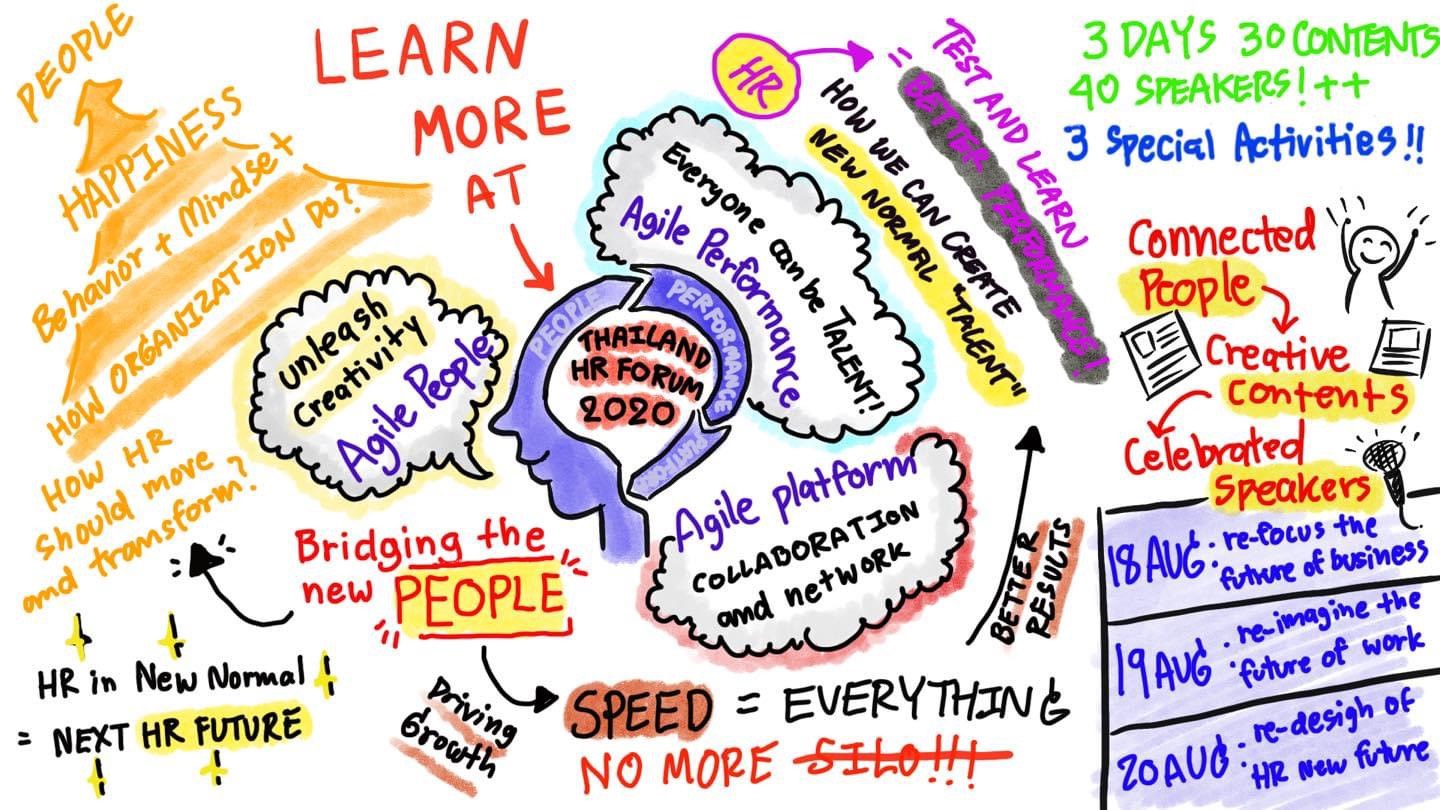 PEOPLE
HAPPINESS
Behavior + Mindset
HOW ORGANIZATION DO?
HOW HR
should more
and transform?
LEARN
MORE
AT
Unleash
Creativity
Agile People
PEOPLE
PERFORMANCE
THAILAND
HR FORUM
2020
Everyone can be TALENT!
Agile Performance
HR
TEST AND LEARN
= BETTER PERFORMANCE!
HOW WE CAN CREATE
NEW NORMAL "TALENT"
Agile platform
COLLABORATION
and network
Bridging the
new PEOPLE
HR in New Normal
= NEXT HR FUTURE
Driving
Growth
SPEED = EVERYTHING
NO MORE SILO!!!
BETTER
RESULTS
3 DAYS 30 CONTENTS
40 SPEAKERS!++
3 Special Activities!!
Connected
People
Creative
Contents
Celebrated
Speakers
18 AUG: re-focus the
future of business
19 AUG: re-imagine the
future of work
20 AUG: re-desigh of
HR new future